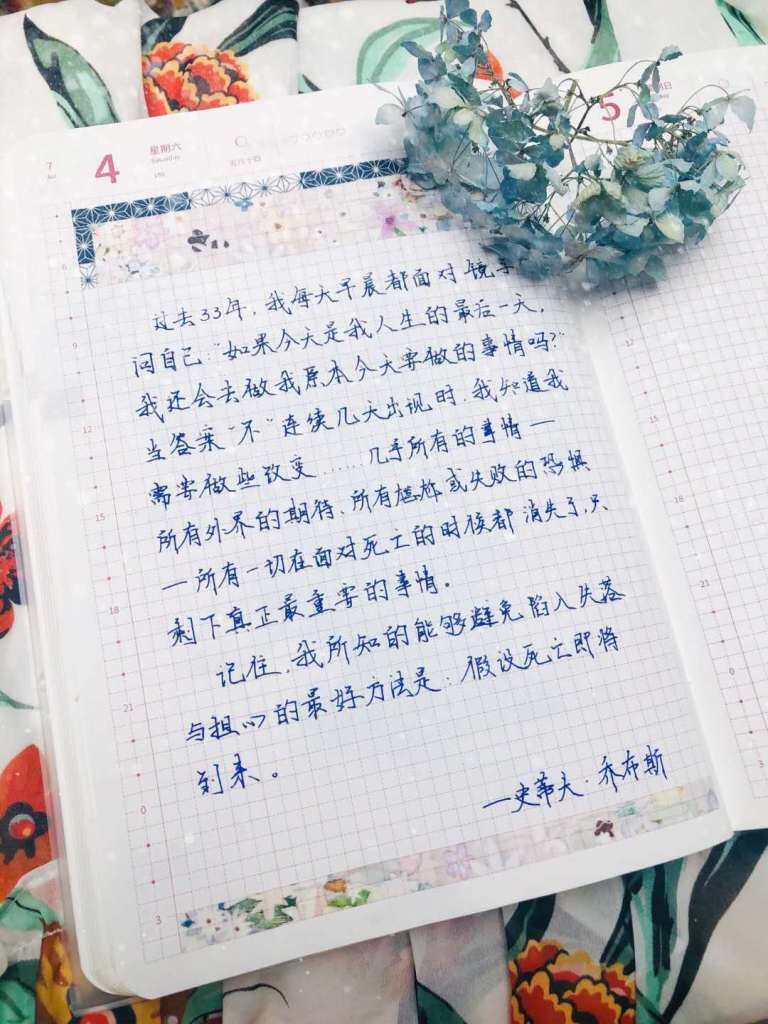 7
4
星期六
Saturday
5
过去33年，我每天早晨都面对镜子
问自己“如果今天是我人生的最后一天，
我还会去做我原本今天要做的事情吗？”
当答案“不”连续几天出现时，我知道我
需要做些改变……几乎所有的事情—
所有外界的期待、所有尴尬或失败的恐惧
—所有一切在面对死亡的时候都消失了，只
剩下真正最重要的事情。
记住，我所知的能够避免陷入失落
与担心的最好方法是：假设死亡即将
到来。
—史蒂夫·乔布斯
6
9
12
15
18
21
0
3
12
18
21
0